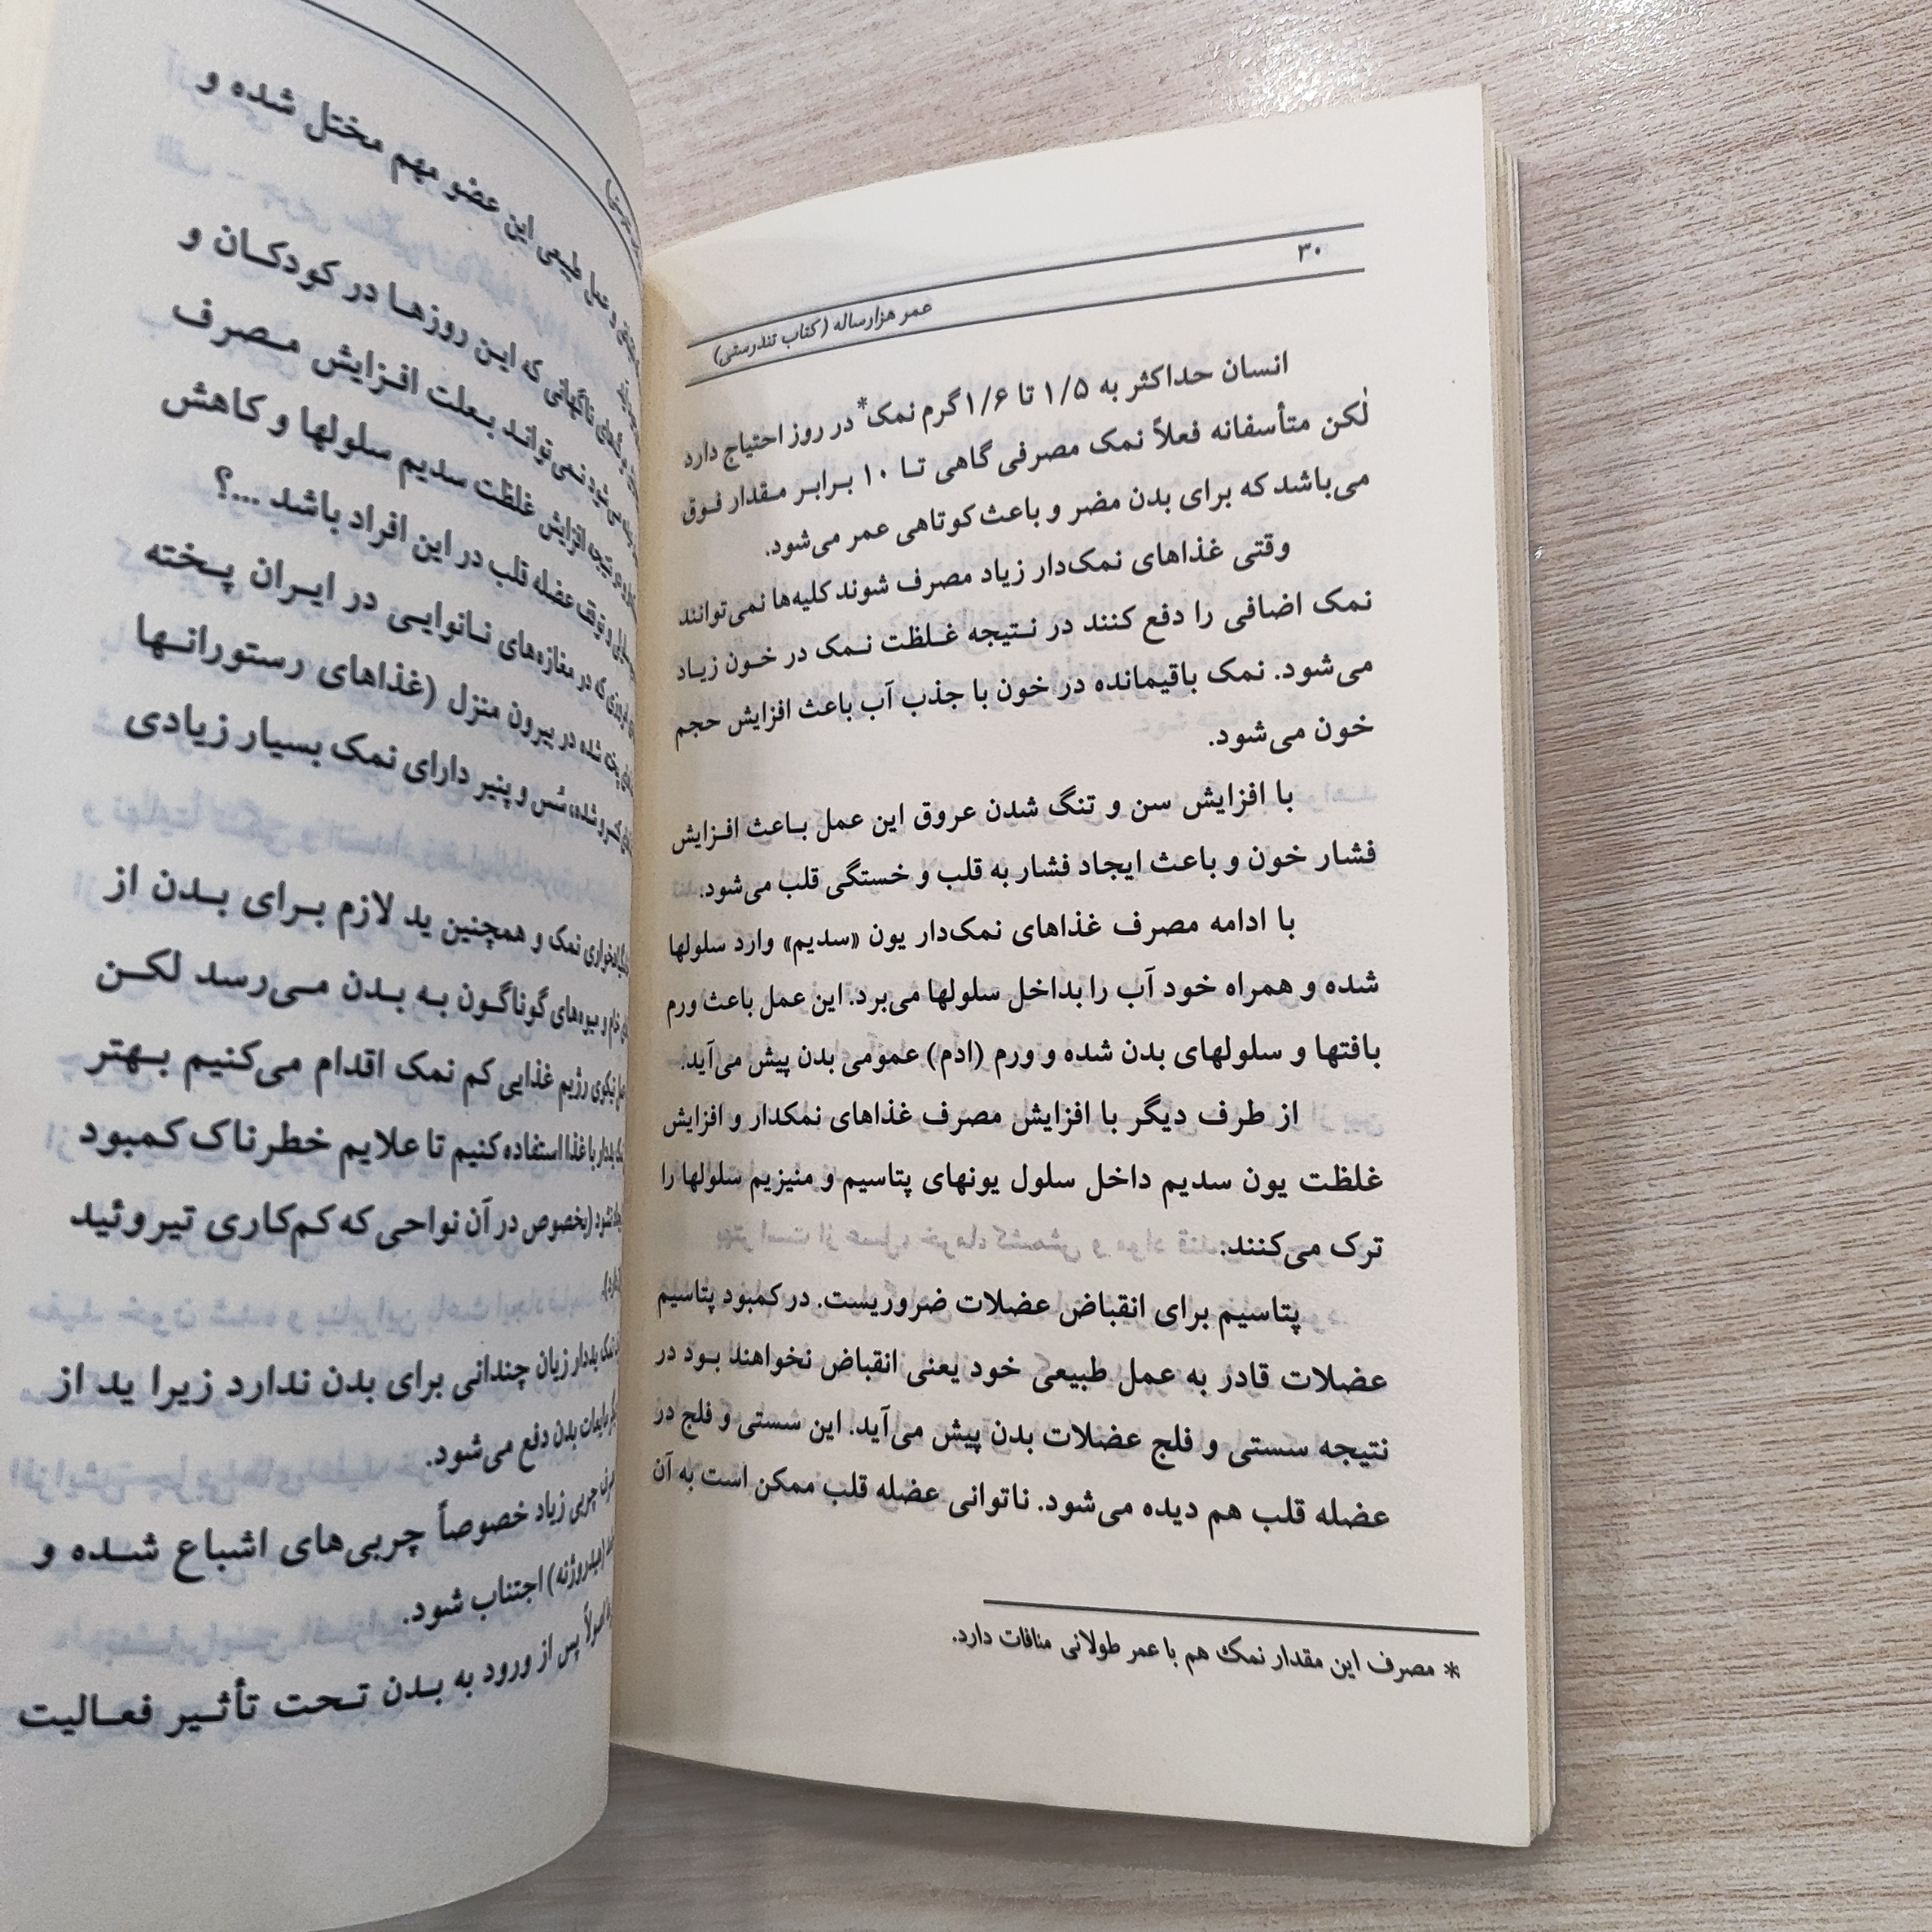 ۳۰
عمر هزارساله (کتاب تندرستی)
انسان حداکثر به ۱/۵ تا ۱/۶ گرم نمک* در روز احتیاج دارد
لٰکن متأسفانه فعلاً نمک مصرفی گاهی تا ۱۰ برابر مقدار فوق
می‌باشد که برای بدن مضر و باعث کوتاهی عمر می‌شود.
وقتی غذاهای نمک‌دار زیاد مصرف شوند کلیه‌ها نمی‌توانند
نمک اضافی را دفع کنند در نتیجه غلظت نمک در خون زیاد
می‌شود. نمک باقیمانده در خون با جذب آب باعث افزایش حجم
خون می‌شود.
با افزایش سن و تنگ شدن عروق این عمل باعث افزایش
فشار خون و باعث ایجاد فشار به قلب و خستگی قلب می‌شود.
با ادامه مصرف غذاهای نمک‌دار یون «سدیم» وارد سلولها
شده و همراه خود آب را بداخل سلولها می‌برد. این عمل باعث ورم
بافتها و سلولهای بدن شده و ورم (ادم) عمومی بدن پیش می‌آید.
از طرف دیگر با افزایش مصرف غذاهای نمکدار و افزایش
غلظت یون سدیم داخل سلول یونهای پتاسیم و منیزیم سلولها را
ترک می‌کنند.
پتاسیم برای انقباض عضلات ضروریست. در کمبود پتاسیم
عضلات قادر به عمل طبیعی خود یعنی انقباض نخواهند بود در
نتیجه سستی و فلج عضلات بدن پیش می‌آید. این سستی و فلج در
عضله قلب هم دیده می‌شود. ناتوانی عضله قلب ممکن است به آن
* مصرف این مقدار نمک هم با عمر طولانی منافات دارد.
و عمل طبیعی این عضو مهم مختل شده و
ناگهانی که این روزها در کودکان و
می‌شود نمی‌تواند بعلت افزایش مصرف
در نتیجه افزایش غلظت سدیم سلولها و کاهش
و توقف عضله قلب در این افراد باشد ...؟
که در مغازه‌های نانوایی در ایران پخته
پخته شده در بیرون منزل (غذاهای رستورانها
شده، سُس و پنیر دارای نمک بسیار زیادی
نمک و همچنین ید لازم برای بدن از
خام و میوه‌های گوناگون به بدن می‌رسد لکن
نیکوی رژیم غذایی کم نمک اقدام می‌کنیم بهتر
یددار با غذا استفاده کنیم تا علایم خطرناک کمبود
نشود (بخصوص در آن نواحی که کم‌کاری تیروئید
نمک یددار زیان چندانی برای بدن ندارد زیرا ید از
مایعات بدن دفع می‌شود.
چربی زیاد خصوصاً چربی‌های اشباع شده و
(هیدروژنه) اجتناب شود.
اصولاً پس از ورود به بدن تحت تأثیر فعالیت